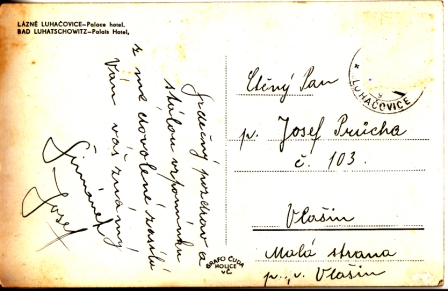 LÁZNĚ LUHAČOVICE—Palace hotel.
BAD LUHATSCHOWITZ—Palais Hotel,
Srdečný pozdrav a
stálou vzpomínku
z mé dovolené zasílá
Vám váš známý
Josef
Ctěný Pan
p. Josef Průcha
č. 103.
Vlašim
Malá strana
p., v. Vlašim
LUHAČOVICE
GRAFO ČUDA
HOLICE
v Č.